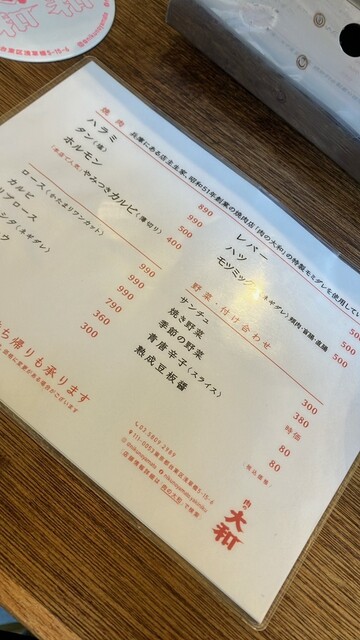 焼肉
兵庫にある店主生家、昭和51年創業の焼肉店「肉の大和」の特製モミダレを使用してい
ハラミ 890
タン(塩) 990
ホルモン 500
(本店で人気)やみつきカルビ(薄切り) 400
ロース(かたまりワンカット) 990
カルビ 990
リブロース 990
(ネギダレ) 790
360
300
ち帰りも承ります
レバー 500
ハツ 500
モツミックス(ネギダレ)頬肉・盲腸・直腸 500
野菜・付け合わせ
サンチュ 300
焼き野菜 380
季節の野菜 時価
青唐辛子(スライス) 80
熟成豆板醤 80
(税込価格)
03.5809.2989
〒111-0053 東京都台東区浅草橋5-16-6
肉の
大和